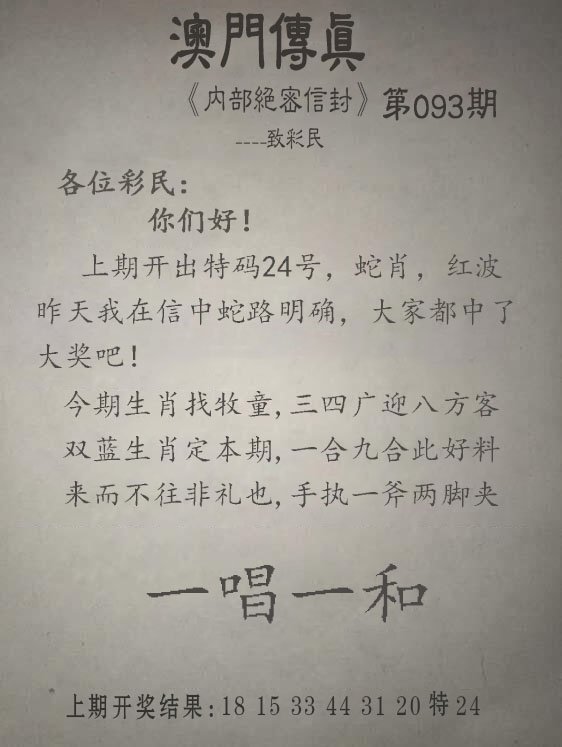 澳門傳真
《内部絕密信封》第093期
----致彩民
各位彩民:
你们好!
上期开出特码24号，蛇肖，红波
昨天我在信中蛇路明确，大家都中了
大奖吧!
今期生肖找牧童,三四广迎八方客
双蓝生肖定本期,一合九合此好料
来而不往非礼也,手执一斧两脚夹
一唱一和
上期开奖结果:18 15 33 44 31 20 特 24